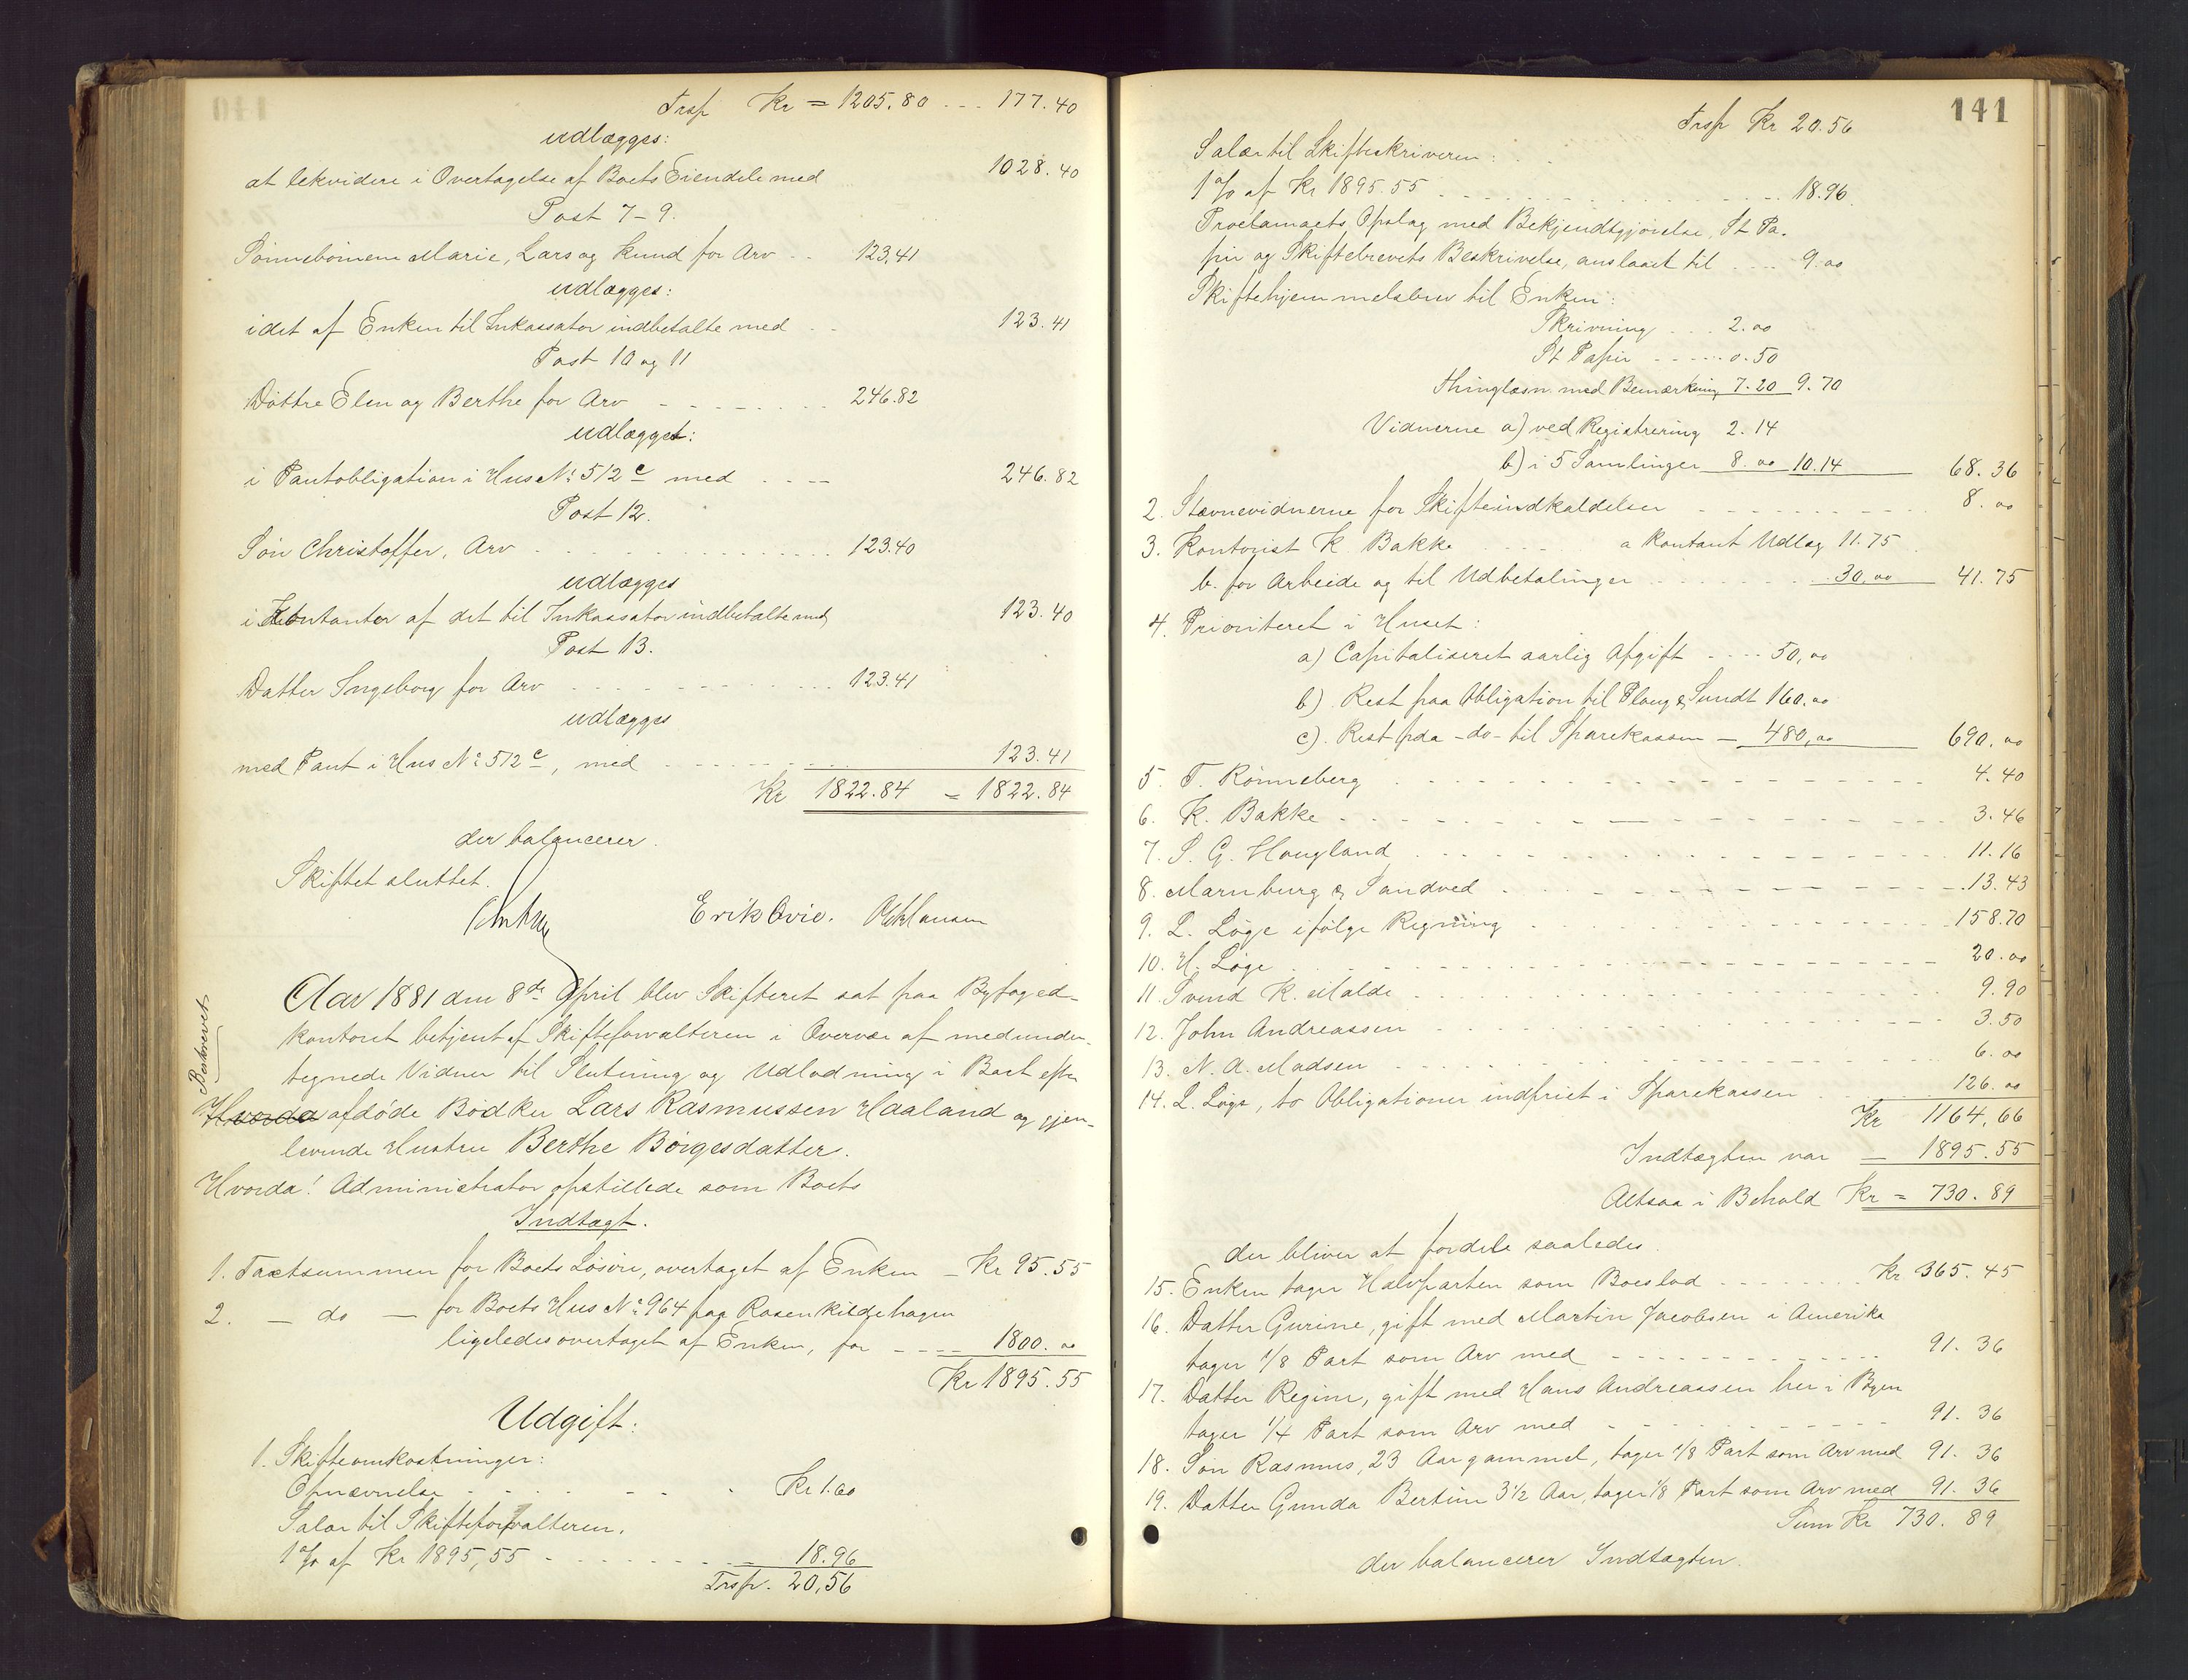 Trsp Kr = 1205.80 - - - 177.40
udlægges:
at lekvidere i Overtagelse af Boets Eiendele med 1028.40
Post 7-9.
Sønnebørnene Marie, Lars og Knud for Arv - - 123.41
udlægges:
i det af Enken til Inkassator indbetalte med - - 123.41
Post 10 og 11
Døttre Elen og Berthe for Arv - - - - - - - 246.82
udlægget:
i Pantobligation i Hus No 512 c med - - - - 246.82
Post 12.
Søn Christoffer, Arv - - - - - - - 123.40
udlægges
i Kontanter af det til Inkassator indbetalte med 123.40
Post 13.
Datter Ingeborg for Arv - - - - - - - 123.41
udlægges
med Pant i Hus No 512 c, med - - - - - - 123.41
Kr 1822.84 = 1822.84
der balancerer.
Skiftet sluttet.
Erik Ovie.
Aar 1881 den 8de April blev Skifteret sat paa Byfoged-
kontoret betjent af Skifteforvalteren i Overvær af medunder-
tegnede Vidner til Slutning og Udlodning i Boet efter
Beskrevet
Hvorda afdøde Bødker Lars Rasmussen Haaland og gjen-
levende Hustru Berthe Børgesdatter.
Hvorda! Administrator opstillede som Boets
Indtægt.
1. Taxtsummen for Boets Løsøre, overtaget af Enken - Kr 95.55
2. - do - for Boets Hus No 964 paa Rosenkildehagen
ligeledes overtaget af Enken, for - - - - 1800.00
Kr 1895.55
Udgift:
1. Skifteomkostninger:
Opnævnelse - - - - - - Kr 1.60
Salær til Skifteforvalteren.
1 % af Kr 1895,55 - - - - - - - 18.96
Trsp. 20,56
141
Trsp Kr 20.56
Salær til Skifteskriveren:
1 % af Kr 1895.55 - - - - - - - 18.96.
Proclamaets Opslag med Bekjendtgjørelse, St Pa-
pir og Skiftebrevets Beskrivelse, anslaaet til - - - - 9.00
Skiftehjemmelsbrev til Enken:
Skrivning - - - 2.00
St Papir - - - - - 0.50
Thinglæsn. med Bemærkning 7.20 9.70
Vidnerne a) ved Registrering 2.14
b) i 5 Samlinger 8.00 10.14 68.36
2. Stævnevidnerne for Skifteindkaldelser - - - - - - - 8.00
3. Kontorist K. Bakke - - - - a Kontant Udlæg 11.75
b. for Arbeide og til Udbetalinger - - - - - - 30,00 41.75
4. Prioriteret i Huset:
a) Capitaliseret aarlig Afgift - - - - 50,00
b). Rest paa Obligation til Ploug & Sundt 160.00
c). Rest paa -do- til Sparekassen - 480,00 690.00
5. T. Rønneberg - - - - - - - 4.40
6. K. Bakke - - - - - - - 3.46
7. S. G. Hougland - - - - - - - 11.16
8. Marnburg & Sandved - - - - - - - 13.43
9. L. Løge ifølge Regning - - - - - - - 158.70
10. H. Løge - - - - - - - 20.00
11. Svend K. Malde - - - - - - - 9.90
12. John Andreassen - - - - - - - 3.50
13. N. A. Madsen - - - - - - - 6.00
14. L. Løge, to Obligationer indfriet i Sparekassen - 126.00
Kr 1164,66
Indtægten var - 1895.55
Altsaa i Behold Kr = 730.89
der bliver at fordele saaledes.
15. Enken tager Halvparten som Boeslod - - - - - - - Kr 365.45
16. Datter Gurine, gift med Martin Jacobsen i Amerika
tager 1/8 Part som Arv med - - - - - - - 91.36
17. Datter Regine, gift med Hans Andreassen her i Byen
tager 1/4 Part som Arv med - - - - - - - 91.36
18. Søn Rasmus, 23 Aar gammel, tager 1/8 Part som Arv med 91.36
19. Datter Gunda Bertine 3 1/2 Aar, tager 1/8 Part som Arv med 91.36
Sum Kr 730.89
der balancerer Indtægten.